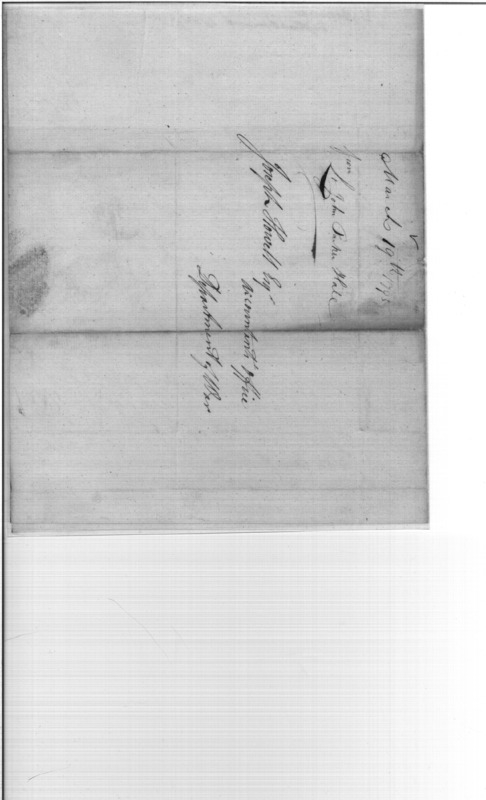 March 19th 1795
from Lt John Tinker Hale
Joseph Howell Esqr
Accountants Office
Department of War